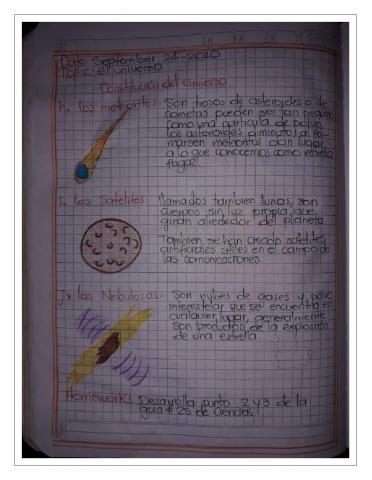 Date September 24-2020
Topic: el universo
Constitución del universo
h. los meteoritos: Son trozos de asteroides o de
cometas pueden ser tan pequeños
como una particula de polvo,
los asteroides diminutos al for-
marsen meteoritos dan lugar
a lo que conocemos como estrella
fugaz.
i. los Satelites: llamados tambien lunas, son
cuerpos sin luz propia, que
giran alrededor del planeta.
Tambien se han creado satelites
artificiales utiles en el campo de
las comunicaciones.
J. las Nebulosas: Son nubes de gases y polvo
interestelar que se encuentra en
cualquier lugar, generalmente
son productos de la explosión
de una estrella
Homework: Desarrolla punto 2 y 3 de la
guia # 25 de Ciencias.